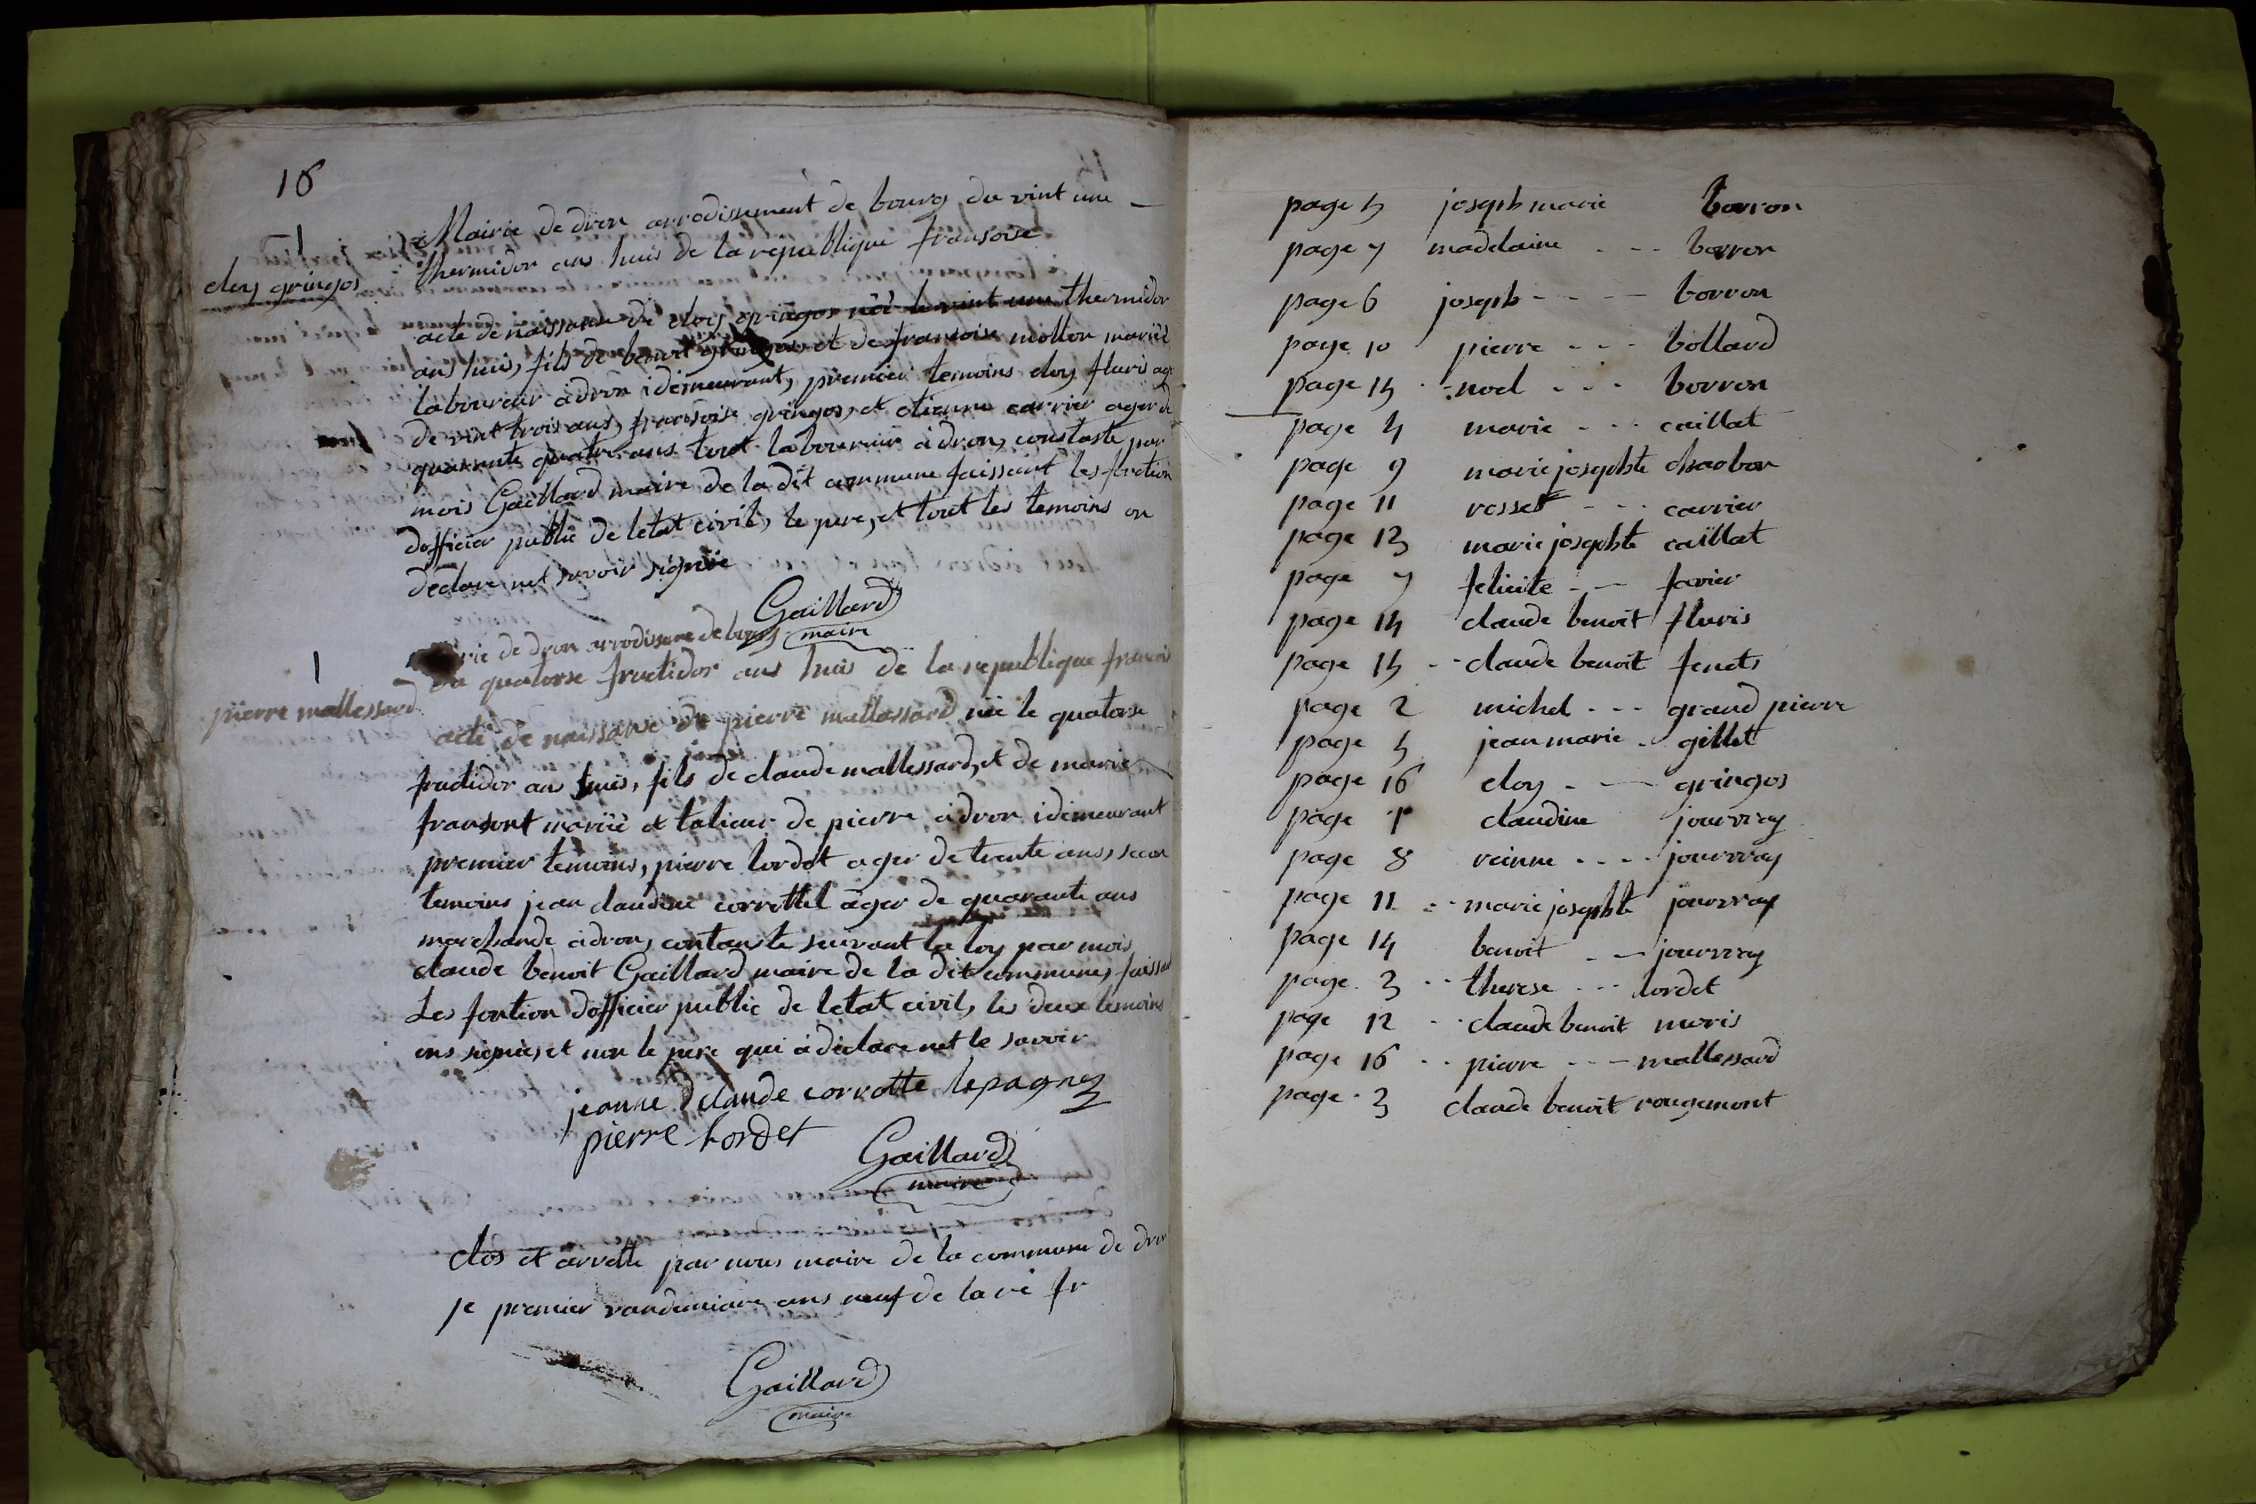 16
Mairie de dron arrodissement de bourg du vint une
thermidor ans huis de la republique fransoise
1
eloy gringos
acte de naissanse de eloy gringos néé le vint une thermidor
ans huis, fils de benoit gringos et de fransoise mollon mariéé
laboureur a dron idemeurant, premier temoins eloy fluris age
de vint trois ans, fransoise gringos, et etienne carrier ager de
quarante quatre ans tout laboureur a dron, constaste par
mois Gaillard maire de la dit commune faissant les fontion
dofficier public de letat civil, le pere, et tout les temoins on
declare net savoir signée
Gaillard
maire
rie de dron arrodisseme de bourg
1
du quatorse frutidor ans huis de la republique fransois
pierre mallessard
acte de naissanse de pierre mallassard néé le quatorse
frutidor ans huis, fils de claude mallessard, et de marie
fransont mariéé et talieur de pierre a dron idemeurant
premier temoins, pierre lordet ager de trente ans, secon
temoins jean claudine corrottel ager de quarante ans
marchande a dron, contanste seuvant la loy par mois
claude benoit Gaillard maire de la dit commune, faissan
Les fontion dofficier public de letat civil, les deux temoins
ons signées et non le pere qui a declare net le savoir
jeanne claude corrotte lepagney
pierre Lordet
Gaillard
maire
clos et arrette par nous maire de la commune de dron
je premier vandemiaire ans neuf de la ré fr
Gaillard
maire
page 5 joseph marie borron
page 7 madelaine - - - borron
page 6 joseph - - - - borron
page 10 pierre - - - bollard
page 15 - noel - - - borron
page 4 marie - - - caillat
page 9 marie josephte charbon
page 11 rosset - - - carrier
page 13 marie josephte caillat
page 7 felicite - - - favier
page 14 claude benoit fluris
page 15 - - claude benoit fenets
page 2 michel - - - grand pierre
page 5 jean marie - gillet
page 16 eloy - - - gringos
page 1 claudine jourvray
page 8 reinne - - - - jourvray
page 11 - - marie josephte jourvray
page 14 benoit - - - jourvray
page 3 - - therese - - - lordet
page 12 - - claude benoit moris
page 16 - - pierre - - - mallessard
page 3 claude benoit rougemont